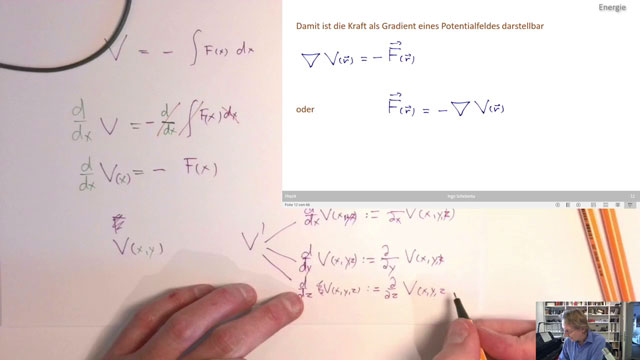 Energie
Damit ist die Kraft als Gradient eines Potentialfeldes darstellbar
∇ V(r⃗) = − F⃗(r⃗)
oder
F⃗(r⃗) = − ∇ V(r⃗)
V = − ∫ F(x) dx
d/dx V = − d/dx ∫ F(x) dx
d/dx V(x) = − F(x)
V(x,y)
V'
d/dx V(x,y,z) := ∂/∂x V(x,y,z)
d/dy V(x,y,z) := ∂/∂y V(x,y,z
d/dz V(x,y,z) := ∂/∂z V(x,y,z